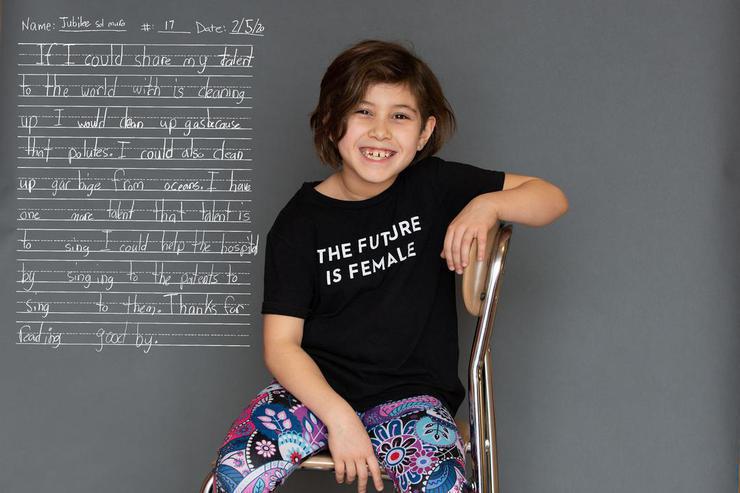 Name: Jubilee #: 17 Date: 2/5/20
If I could share my talent
to the world with is cleaning
up I would clean up gas because
that polutes. I could also clean
up garbige from oceans. I have
one more talent that talent is
to sing I could help the hospital
by singing to the patents to
sing to them. Thanks for
reading good by.
THE FUTURE
IS FEMALE